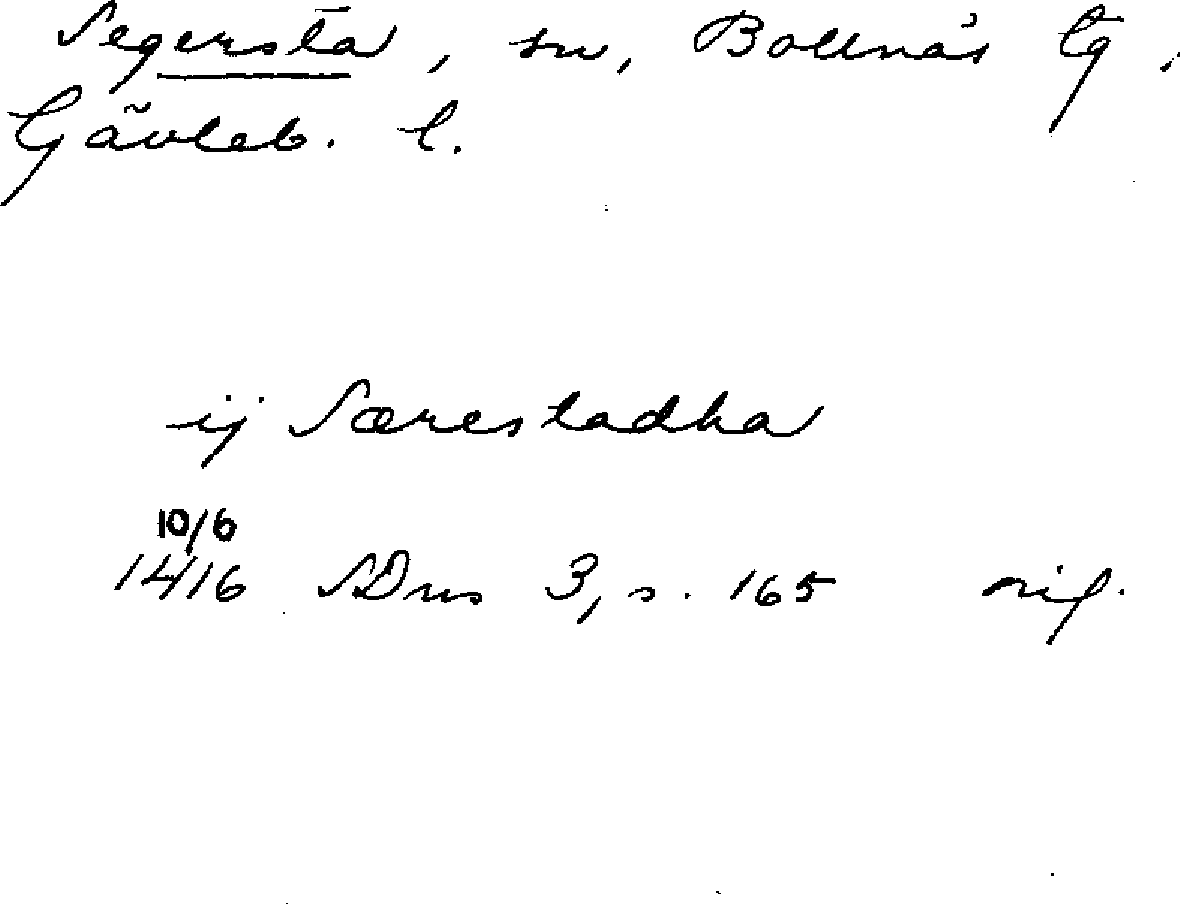 Segersta, sn, Bollnäs tg.
Gävleb. l.
ij Særestadha
10/6
1416 SDns 3, s. 165 orig.